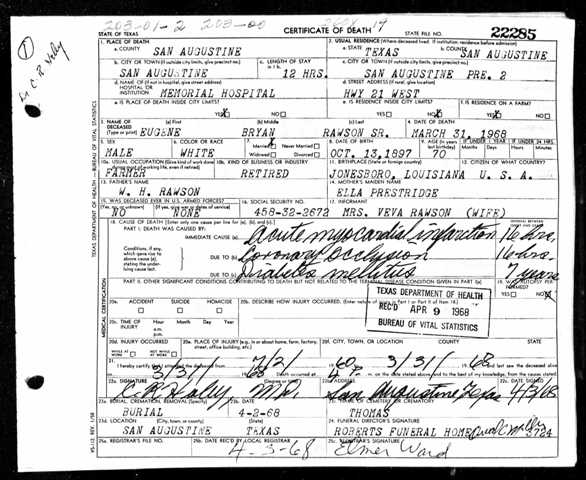 203-01-2 203-00 17
STATE OF TEXAS CERTIFICATE OF DEATH STATE FILE NO. 22285
1. PLACE OF DEATH 2. USUAL RESIDENCE (Where deceased lived. If institution: residence before admission)
a. COUNTY SAN AUGUSTINE a. STATE TEXAS b. COUNTY SAN AUGUSTINE
b. CITY OR TOWN (If outside city limits, give precinct no.) c. LENGTH OF STAY c. CITY OR TOWN (If outside city limits, give precinct no.)
SAN AUGUSTINE 12 HRS. SAN AUGUSTINE PRE. 2
d. NAME OF (If not in hospital, give street address) HOSPITAL OR INSTITUTION MEMORIAL HOSPITAL d. STREET ADDRESS (If rural, give location) HWY 21 WEST
e. IS PLACE OF DEATH INSIDE CITY LIMITS? YES NO e. IS RESIDENCE INSIDE CITY LIMITS? YES NO f. IS RESIDENCE ON A FARM? YES NO
3. NAME OF DECEASED (Type or print) (a) First (b) Middle (c) Last 4. DATE OF DEATH
EUGENE BRYAN RAWSON SR. MARCH 31, 1968
5. SEX 6. COLOR OR RACE 7. Married Never Married Widowed Divorced 8. DATE OF BIRTH 9. AGE (In years last birthday) IF UNDER 1 YEAR IF UNDER 24 HRS.
MALE WHITE OCT. 13, 1897 70
10a. USUAL OCCUPATION (Give kind of work done during most of working life, even if retired) 10b. KIND OF BUSINESS OR INDUSTRY 11. BIRTHPLACE (State or foreign country) 12. CITIZEN OF WHAT COUNTRY?
FARMER RETIRED JONESBORO, LOUISIANA U. S. A.
13. FATHER'S NAME 14. MOTHER'S MAIDEN NAME
W. H. RAWSON ELLA PRESTRIDGE
15. WAS DECEASED EVER IN U.S. ARMED FORCES? 16. SOCIAL SECURITY NO. 17. INFORMANT
NO NONE 458-32-2672 MRS. VEVA RAWSON (WIFE)
18. CAUSE OF DEATH (Enter only one cause per line for (a), (b), and (c).)
PART I. DEATH WAS CAUSED BY:
IMMEDIATE CAUSE (a) Acute myocardial infarction 16 hrs.
DUE TO (b) Coronary Occlusion 16 hrs.
DUE TO (c) Diabetes mellitus 7 years
PART II. OTHER SIGNIFICANT CONDITIONS CONTRIBUTING TO DEATH BUT NOT RELATED TO THE TERMINAL DISEASE CONDITION GIVEN IN PART I(a) 19. WAS AUTOPSY PERFORMED? YES NO
TEXAS DEPARTMENT OF HEALTH
REC'D APR 9 1968
BUREAU OF VITAL STATISTICS
20a. ACCIDENT SUICIDE HOMICIDE 20b. DESCRIBE HOW INJURY OCCURRED.
20c. TIME OF INJURY Hour Month Day Year a.m. p.m.
20d. INJURY OCCURRED WHILE AT WORK NOT WHILE AT WORK 20e. PLACE OF INJURY (e.g., in or about home, farm, factory, street, office building, etc.) 20f. CITY, TOWN, OR LOCATION COUNTY STATE
21. I hereby certify that I attended the deceased from 7/2/ 1960 3/31/ 1968
3/31 1968 Death occurred at 4 P.
22a. SIGNATURE (Degree or title) 22b. ADDRESS 22c. DATE SIGNED
C. R. Haley M.D. San Augustine, Texas 4/3/68
23a. BURIAL, CREMATION, REMOVAL (Specify) 23b. DATE 23c. NAME OF CEMETERY OR CREMATORY
BURIAL 4-2-68 THOMAS
23d. LOCATION (City, town, or county) (State) 24. FUNERAL DIRECTOR'S SIGNATURE
SAN AUGUSTINE TEXAS ROBERTS FUNERAL HOME 3724
25a. REGISTRAR'S FILE NO. 25b. DATE REC'D BY LOCAL REGISTRAR 25c. REGISTRAR'S SIGNATURE
4-3-68 Elmer Ward
TEXAS DEPARTMENT OF HEALTH—BUREAU OF VITAL STATISTICS
MEDICAL CERTIFICATION
VS-112 REV. 1/58
1
Dr C. R. Haley